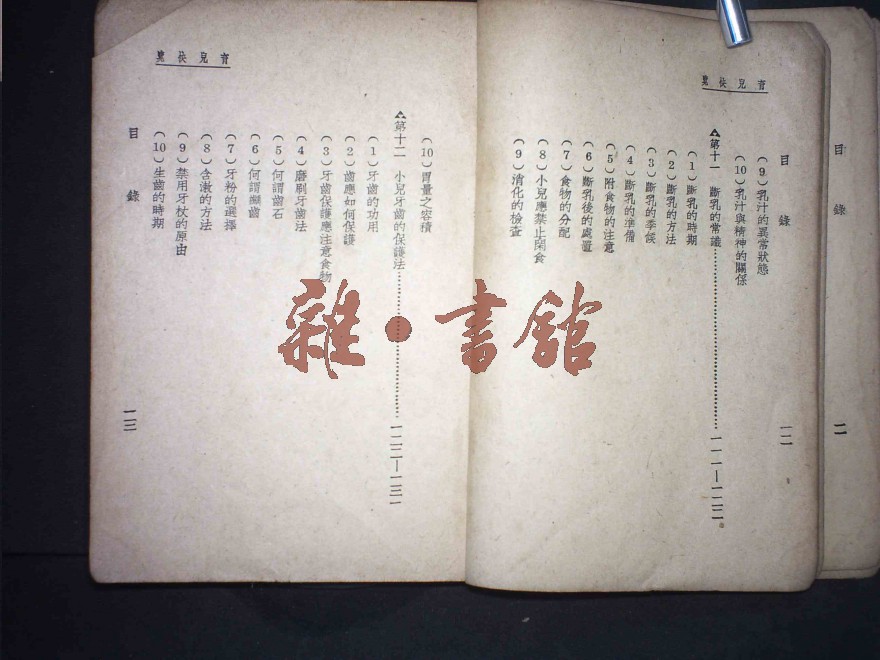 育兒袂里
目錄
(9)乳汁的異常狀態
(10)乳汁與精神的關係
第十一 斷乳的常識……一一一—一二二
(1)斷乳的時期
(2)斷乳的方法
(3)斷乳的季候
(4)斷乳的準備
(5)附食物的注意
(6)斷乳後的處置
(7)食物的分配
(8)小兒應禁止閑食
(9)消化的檢查
一二
(10)胃量之容積
第十二 小兒牙齒的保護法……一二二—一三一
(1)牙齒的功用
(2)齒應如何保護
(3)牙齒保護應注意食物
(4)磨刷牙齒法
(5)何謂齒石
(6)何謂齲齒
(7)牙粉的選擇
(8)含漱的方法
(9)禁用牙杖的原由
(10)生齒的時期
目錄
一三
目錄
二
雜·書館